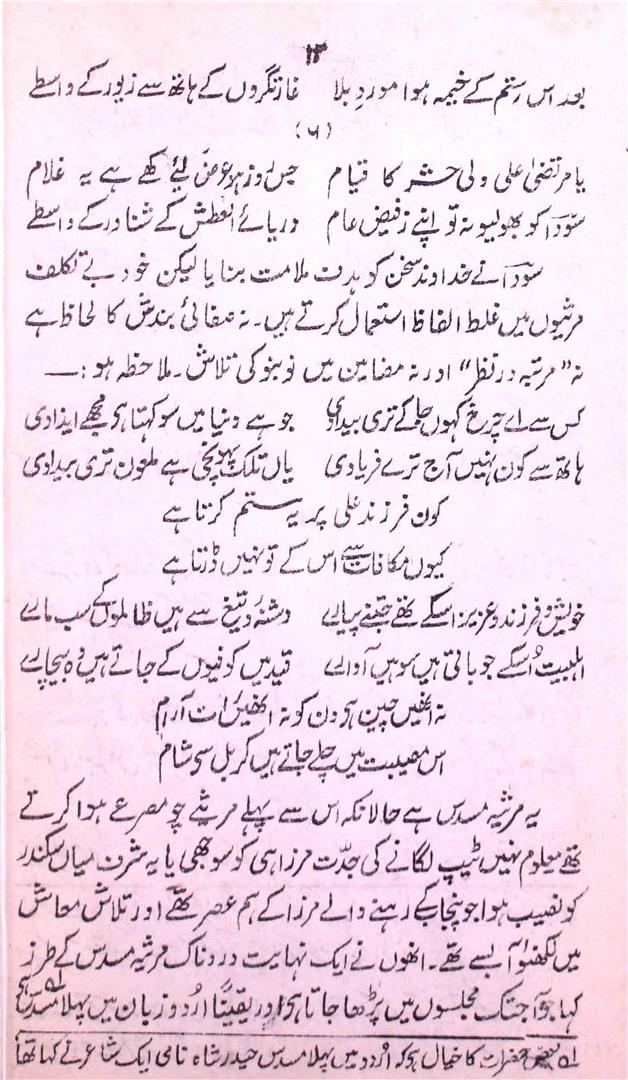 ۱۳
بعد اس رستم کے خیمہ ہوا موردِ بلا غارتگروں کے ہاتھ سے زیور کے واسطے
(۶)
یا مرتضیٰ علی ولی حشر کا قیام جس روز ہو عوض لئے کھے ہے یہ غلام
سوداؔ کو بھولیو نہ تو اپنے ز فیض عام دریائے العطش کے شناور کے واسطے
سوداؔ نے خداوند سخن کو ہدف ملامت بنایا لیکن خود بے تکلف
مرثیوں میں غلط الفاظ استعمال کرتے ہیں۔ نہ صفائی بندش کا لحاظ ہے
نہ "مرتبہ در نظر" اور نہ مضامین میں نو بنو کی تلاش۔ ملاحظہ ہو:۔
کس سے اے چرخ کہوں جاکے تری بیدادی جو ہے دنیا میں سو کہتا ہی مجھے ایذا دی
ہاتھ سے کون نہیں آج ترے فریادی یاں تلک پہونچی ہے ملعون تری بیدادی
کون فرزند علی پر یہ ستم کرتا ہے
کیوں مکافات سے اس کے تو نہیں ڈرتا ہے
خویش و فرزند و عزیز اسکے تھے جتنے پیارے دشنہ و تیغ سے ہیں ظالموں کے سب مارے
اہلبیت اُسکے جو باقی ہیں سو ہیں آوارے قید میں کوفیوں کے جاتے ہیں وہ بیچارے
نہ انھیں چین ہی دن کو نہ انھیں رات آرام
اس مصیبت میں چلے جاتے ہیں کربل سی شام
یہ مرثیہ مسدس ہے حالانکہ اس سے پہلے مرثیے چو مصرعے ہوا کرتے
تھے معلوم نہیں ٹیپ لگانے کی جدّت مرزا ہی کو سوجھی یا یہ شرف میاں سکندر
کو نصیب ہوا جو پنجاب کے رہنے والے مرزا کے ہم عصر تھے اور تلاش معاش
میں لکھنؤ آ بسے تھے۔ انھوں نے ایک نہایت دردناک مرثیہ مسدس کے طرز
کہا جو آجتک مجلسوں میں پڑھا جاتا ہی اور یقیناً اردو زبان میں پہلا مسدس ہی
لہ بعض حضرات کا خیال ہی کہ اُردو میں پہلا مسدس حیدر شاہ نامی ایک شاعر نے کہا تھا